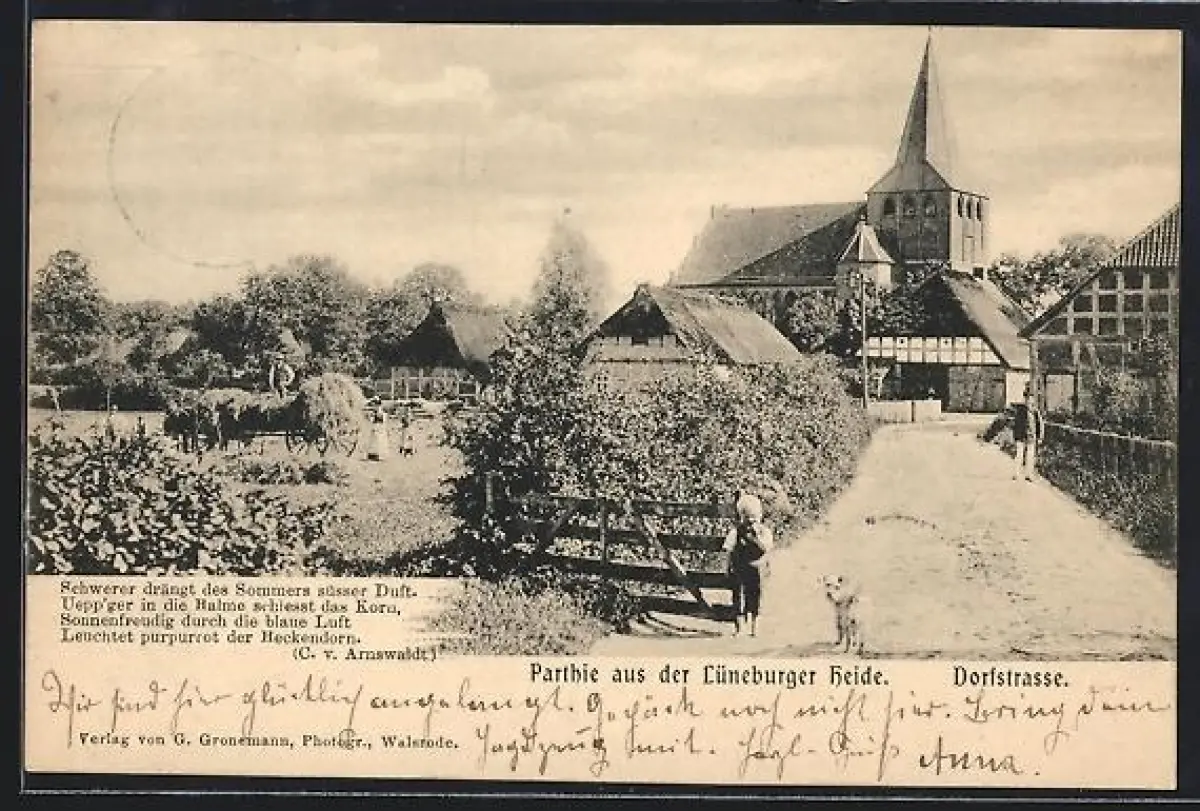 Schwerer drängt des Sommers süsser Duft.
Uepp'ger in die Halme schiesst das Korn,
Sonnenfreudig durch die blaue Luft
Leuchtet purpurrot der Heckendorn.
(C. v. Arnswaldt)
Parthie aus der Lüneburger Heide. Dorfstrasse.
Wir sind hier glücklich angelangt. Gepäck noch nicht hier. Bring dein
Verlag von G. Gronemann, Photogr., Walsrode.
Jagdzeug mit. Gruß Anna.